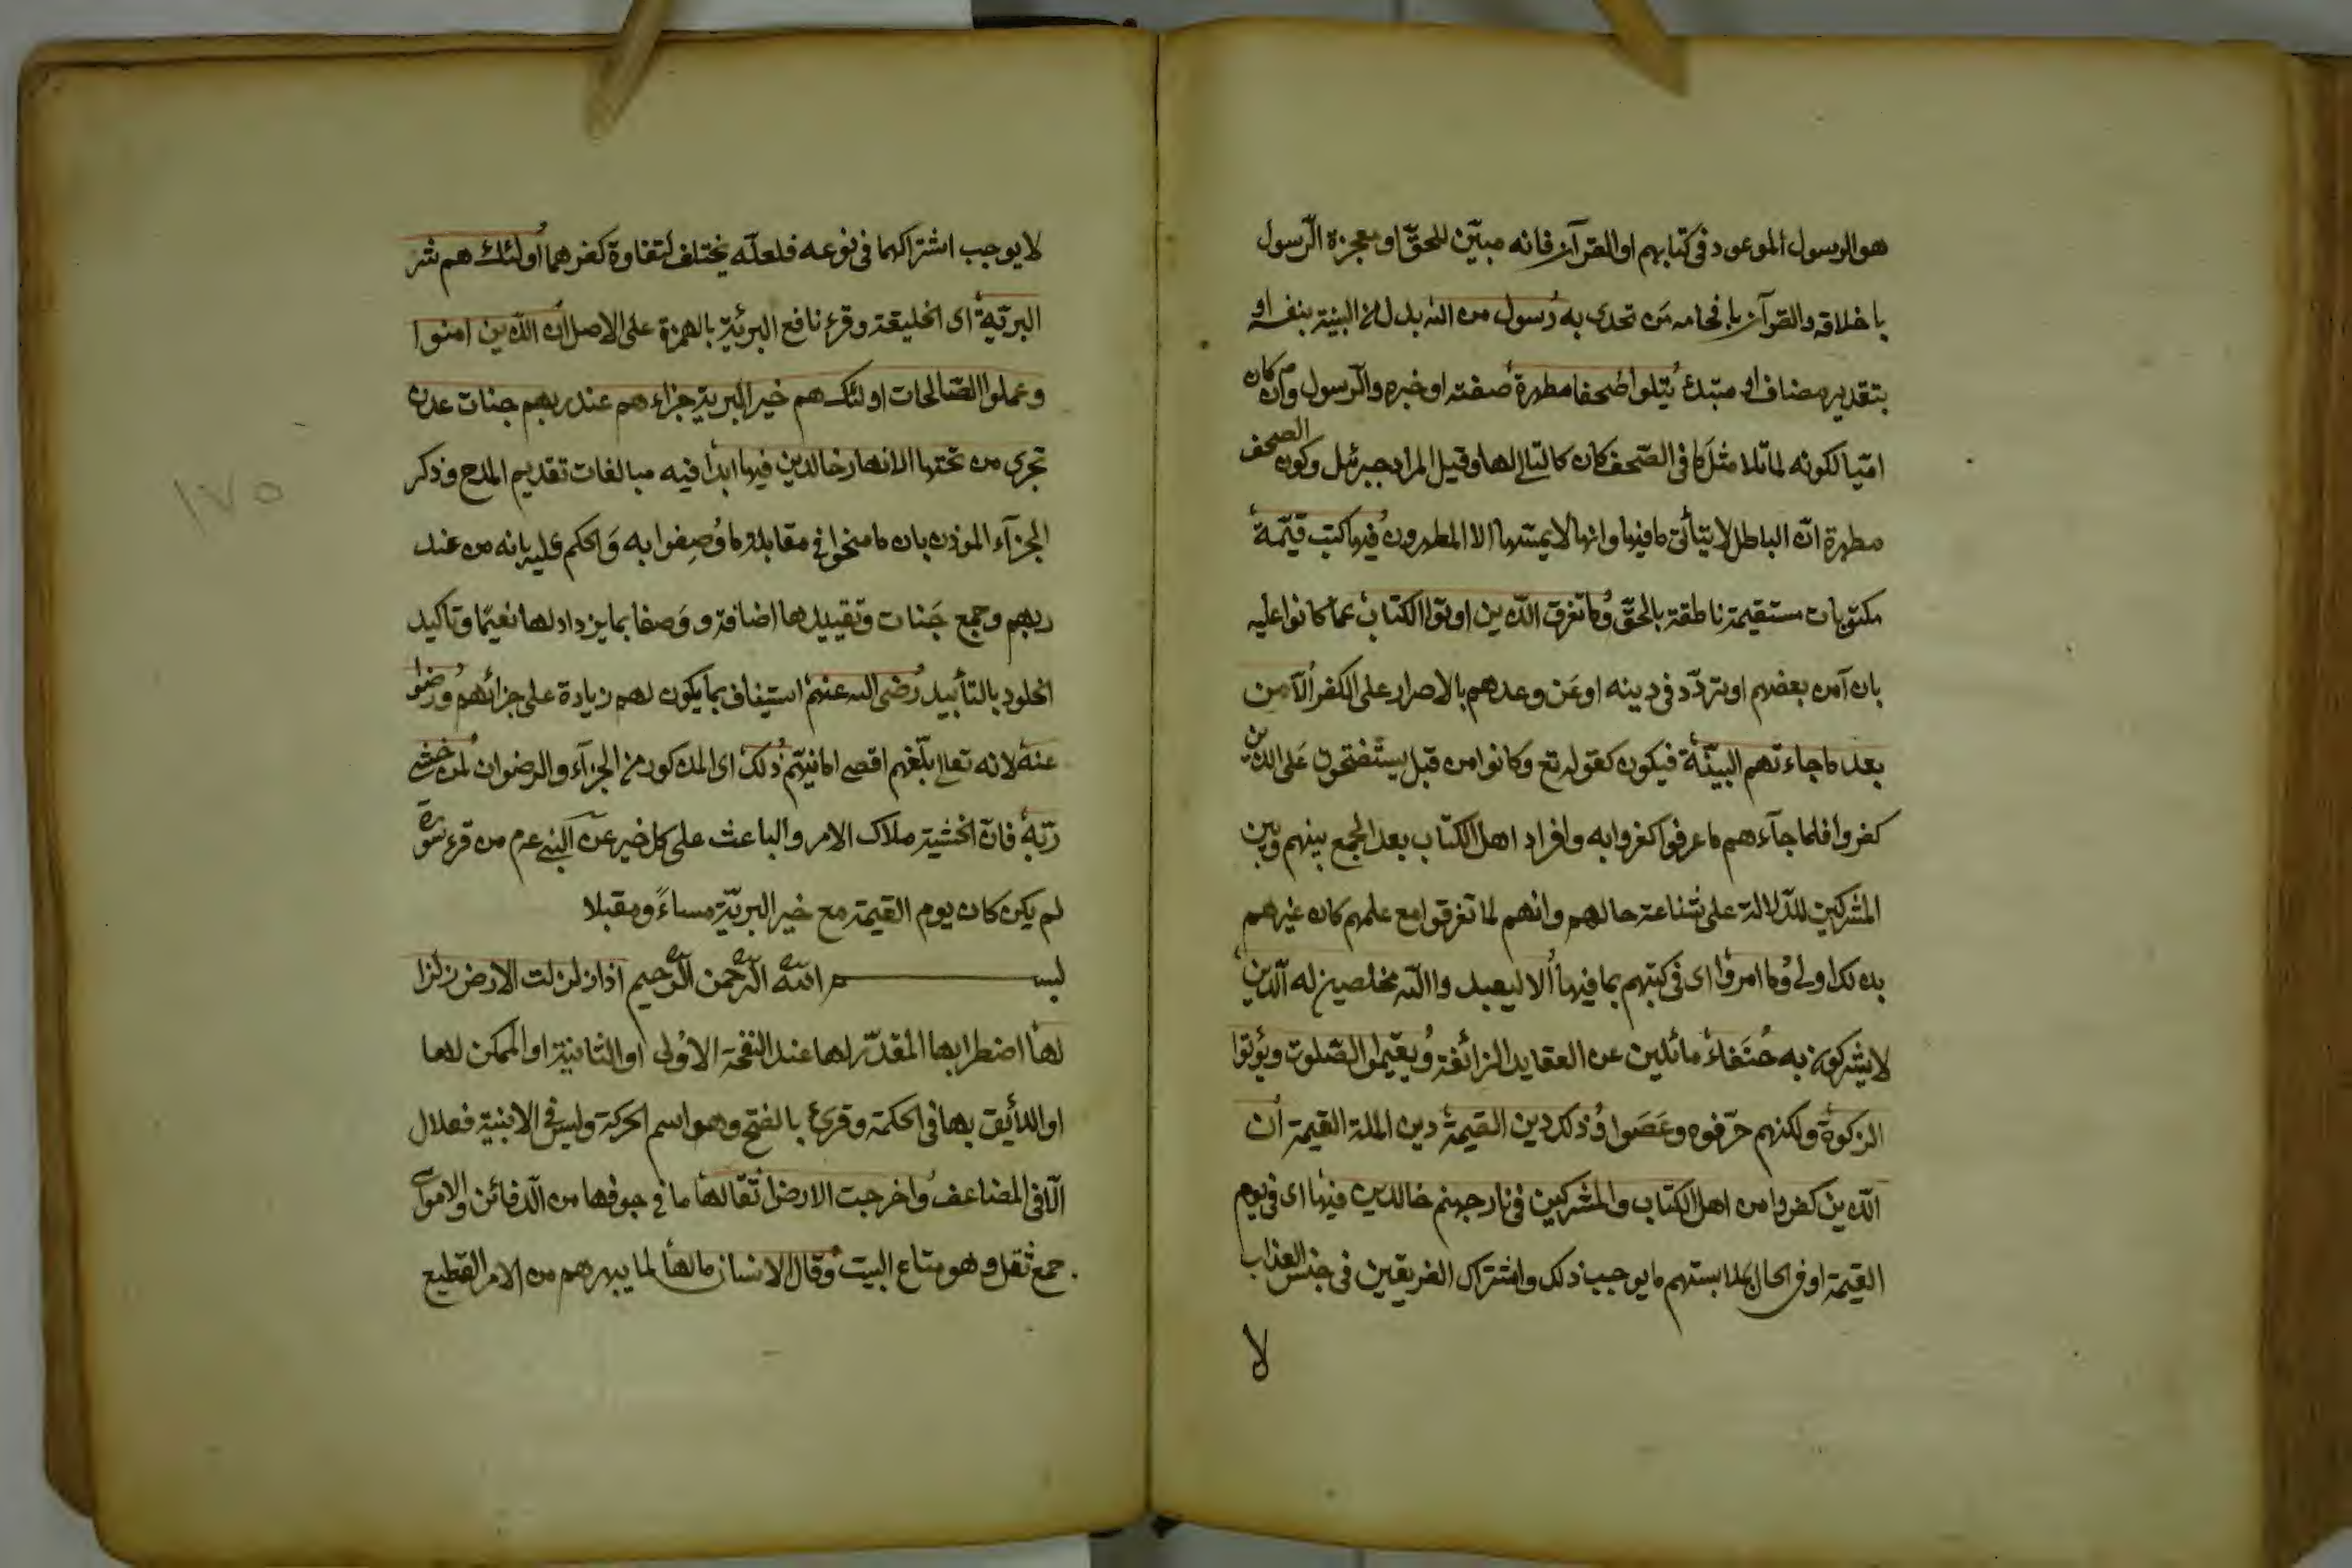 هو الرسول الموعود في كتابهم او القرآن فانه مبيّن للحقّ او معجزة الرّسول
باخلاقه والقرآن بافحامه مَن تحدى به رسول من الله بدل من البينة بنفسه او
بتقدير مضاف او مبتدأ يتلوا صُحفا مطهرة صفته او خبره والرّسول وان كان
اميّا لكونه لما تلا مثل ما في الصّحف كان كالتالي لها وقيل المراد جبرئيل وكون الصحف
مطهرة انّ الباطل لا يتأتى ما فيها وانها لا يمسّها الا المطهرون فيها كتب قيّمة
مكتوبات مستقيمة ناطقة بالحقّ وما تفرق الّذين اوتوا الكتاب عما كانوا عليه
بان آمن بعضهم او تردّد في دينه او عَن وعدهم بالاصرار على الكفر الّا من
بعد ما جاءتهم البيّنة فيكون كقوله تع وكانوا من قبل يستفتحون عَلى الذين
كفروا فلما جآءهم ما عرفوا كفروا به وافراد اهل الكتاب بعد الجمع بينهم وبين
المشركين للدّلالة على شناعة حالهم وانهم لما تفرقوا مع علمهم كان غيرهم
بذلك اولى وما امروا اى فى كتبهم بما فيها الا ليعبدوا الله مخلصين له الّدين
لا يشركون به حُنَفاء مائلين عن العقايد الزائغة ويُقيموا الصّلوت ويؤتوا
الزكوة ولكنهم حرّفوه وعَصَوا وذلك دين القيمة دين الملة القيمة ان
الّذين كفروا من اهل الكتاب والمشركين فى نار جهنم خالدين فيها اى فى يوم
القيمة او فى الحال لملابستهم ما يوجب ذلك واشتراك الفريقين فى جنس العذاب
لا
لا يوجب اشتراكهما فى نوعه فلعلّه يختلف لتفاوة كفرهما اولئك هم شر
البريّة اى الخليقة وقرء نافع البريئة بالهمزة على الاصل ان الّذين امنوا
وعملوا الصّالحات اولئك هم خير البرية جزاءهم عند ربهم جنات عدن
تجرى من تحتها الانهار خالدين فيها ابدا فيه مبالغات تقديم المدح وذكر
الجزآء الموذن بان ما منحوا فى مقابلة ما وُصِفوا به وَالحكم عليه بانه من عند
ربهم وجمع جَنات وتقييدها اضافة ووَصفا بما يزداد لها نعيمًا وتاكيد
الخلود بالتأبيد رُضى الله عنهم استيناف بما يكون لهم زيادة على جزائهم ورضوا
عنه لانه تعالى بلّغهم اقصى امانيّهم ذلك اى المذكور من الجزآء والرضوان لمن خشى
ربّه فانّ الخشية ملاك الامر والباعث على كل خير عن النبي عم من قرء سورة
لم يكن كان يوم القيمة مع خير البريّة مساءً ومقبلا
بســـــم الله الرّحمن الرّحيم اذا زلزلت الارض زلزا
لها اضطرابها المقدّر لها عند النفخة الاوُلى او الثانية او الممكن لها
او اللأيق بها فى الحكمة وقرئ بالفتح وهو اسم الحركة وليس فى الابنية فعلال
الّا فى المضاعف واخرجت الارض اثقالها ما فى جوفها من الّدفائن والاموات
جمع ثقل وهو متاع البيت وقال الانسان مالها لما يبهرهم من الامر الفظيع
١٧٥